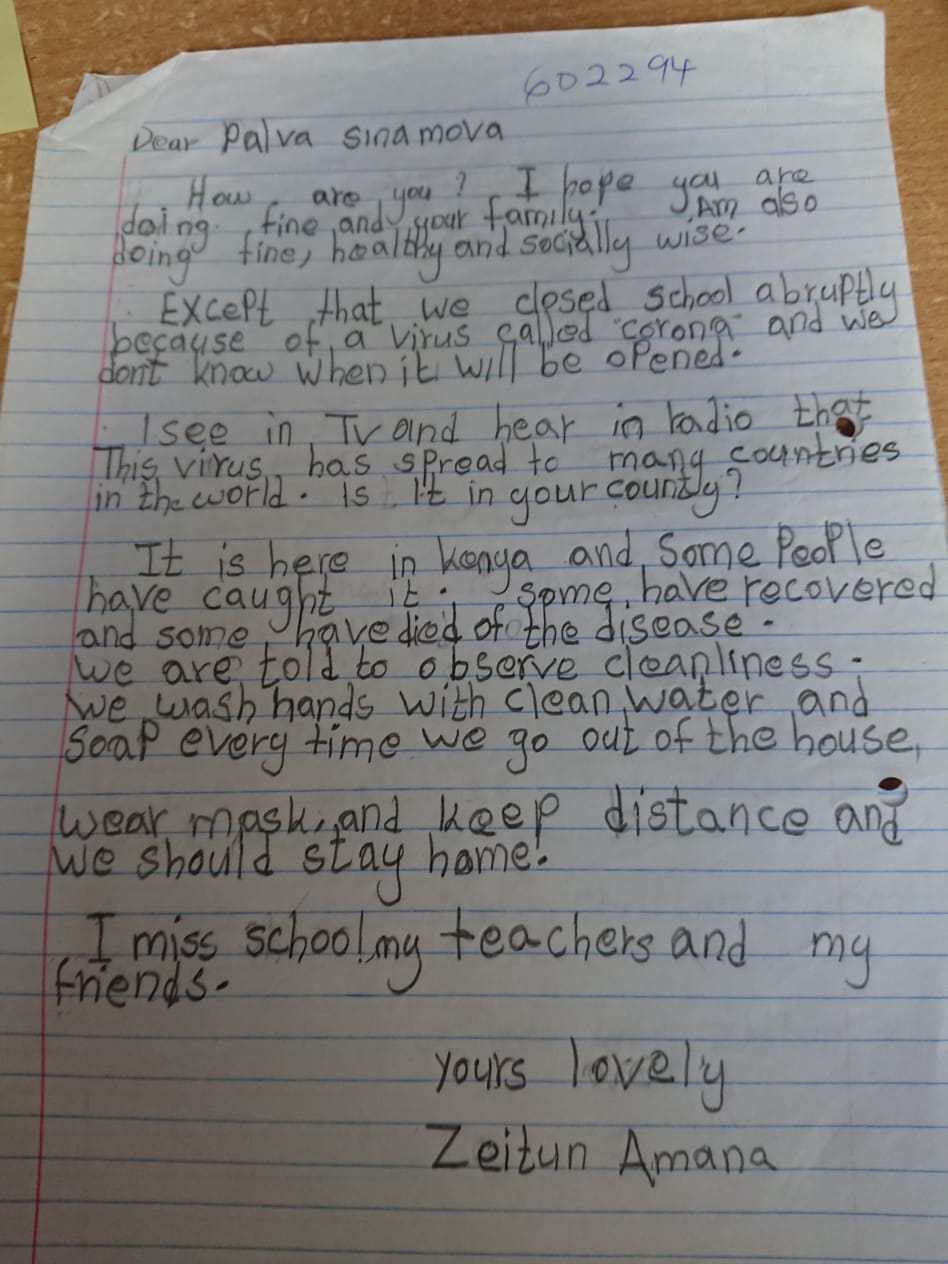 602294
Dear Palva Sinamova
How are you? I hope you are
doing fine and your family. Am also
doing fine, healthy and socially wise.
Except that we closed school abruptly
because of a virus called "corona" and we
dont know when it will be opened.
I see in TV and hear in radio that
This virus has spread to many countries
in the world. Is It in your country?
It is here in kenya and some People
have caught it. some have recovered
and some have died of the disease.
we are told to observe cleanliness.
we wash hands with clean water and
soap every time we go out of the house,
wear mask, and keep distance and
we should stay home.
I miss school, my teachers and my
friends.
yours lovely
Zeitun Amana